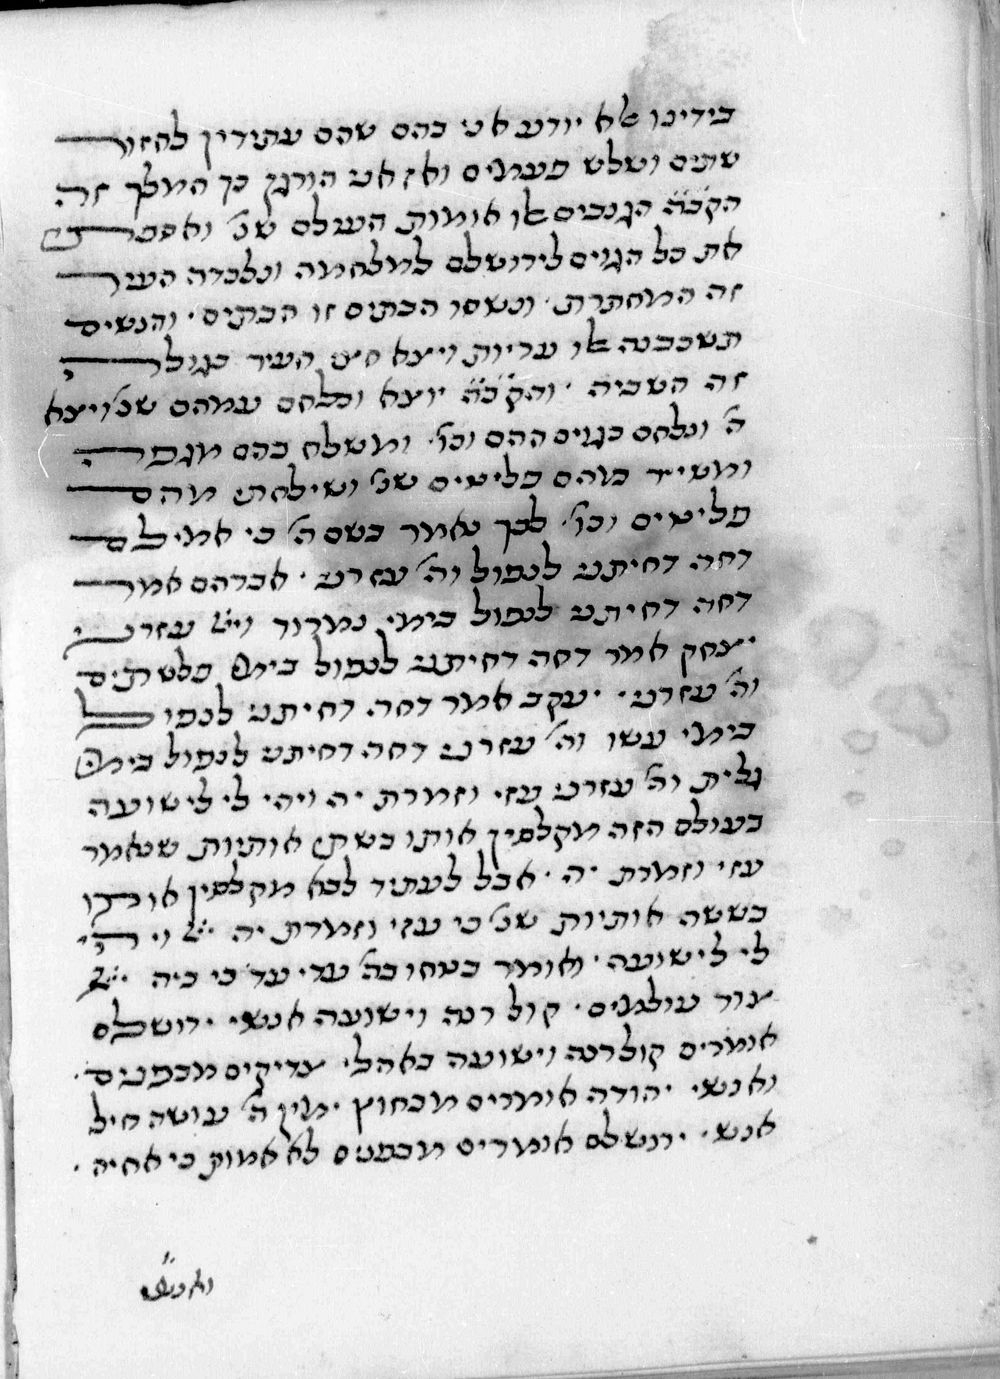 בידינו לא יודע אני בהם שהם עתידין לחזור
שתים ושלש פעמים ואז אני הורגן כך המלך זה
הקב״ה הגנבים אלו אומות העולם שנ׳ ואספתי
את כל הגוים לירושלם למלחמה ונלכדה העיר
זה המחתרת · ונשסו הבתים זו הבתים · והנשים
תשכבנה אלו עריות ויצא חצי העיר בגולה
זה השביה · והקב״ה יוצא ונלחם עמהם שנ׳ ויצא
ה׳ ונלחם בגוים ההם וכו׳ ומשלח בהם מגפה
ומשייר מהם פליטים שנ׳ ושילחתי מהם
פליטים וכו׳ לכך נאמר בשם ה׳ כי אמילם
דחה דחיתני לנפול וה׳ עזרני · אברהם אמר
דחה דחיתני לנפול בימי נמרוד וי״י עזרני
יצחק אמר דחה דחיתני לנפול בימי פלשתים
וה׳ עזרני · יעקב אמר דחה דחיתני לנפול
בימי עשו וה׳ עזרני דחה דחיתני לנפול בימי
גלית וה׳ עזרני עזי וזמרת יה ויהי לי לישועה
בעולם הזה מקלסין אותו בשתי אותיות שנאמר
עזי וזמרת יה · אבל לעתיד לבא מקלסין אותו
בששה אותיות שנ׳ כי עזי וזמרת יה י״י ויהי
לי לישועה · ואומר בטחו בה׳ עדי עד כי ביה י״י
צור עולמים · קול רנה וישועה אנשי ירושלם
אומרים קול רנה וישועה באהלי צדיקים מבפנים ·
ואנשי יהודה אומרים מבחוץ ימין ה׳ עושה חיל
אנשי ירושלם אומרים מבפנים לא אמות כי אחיה ·
ואנשי